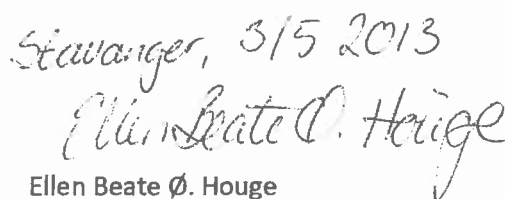 Stavanger, 3/5 2013
Ellen Beate Ø. Houge
Ellen Beate Ø. Houge